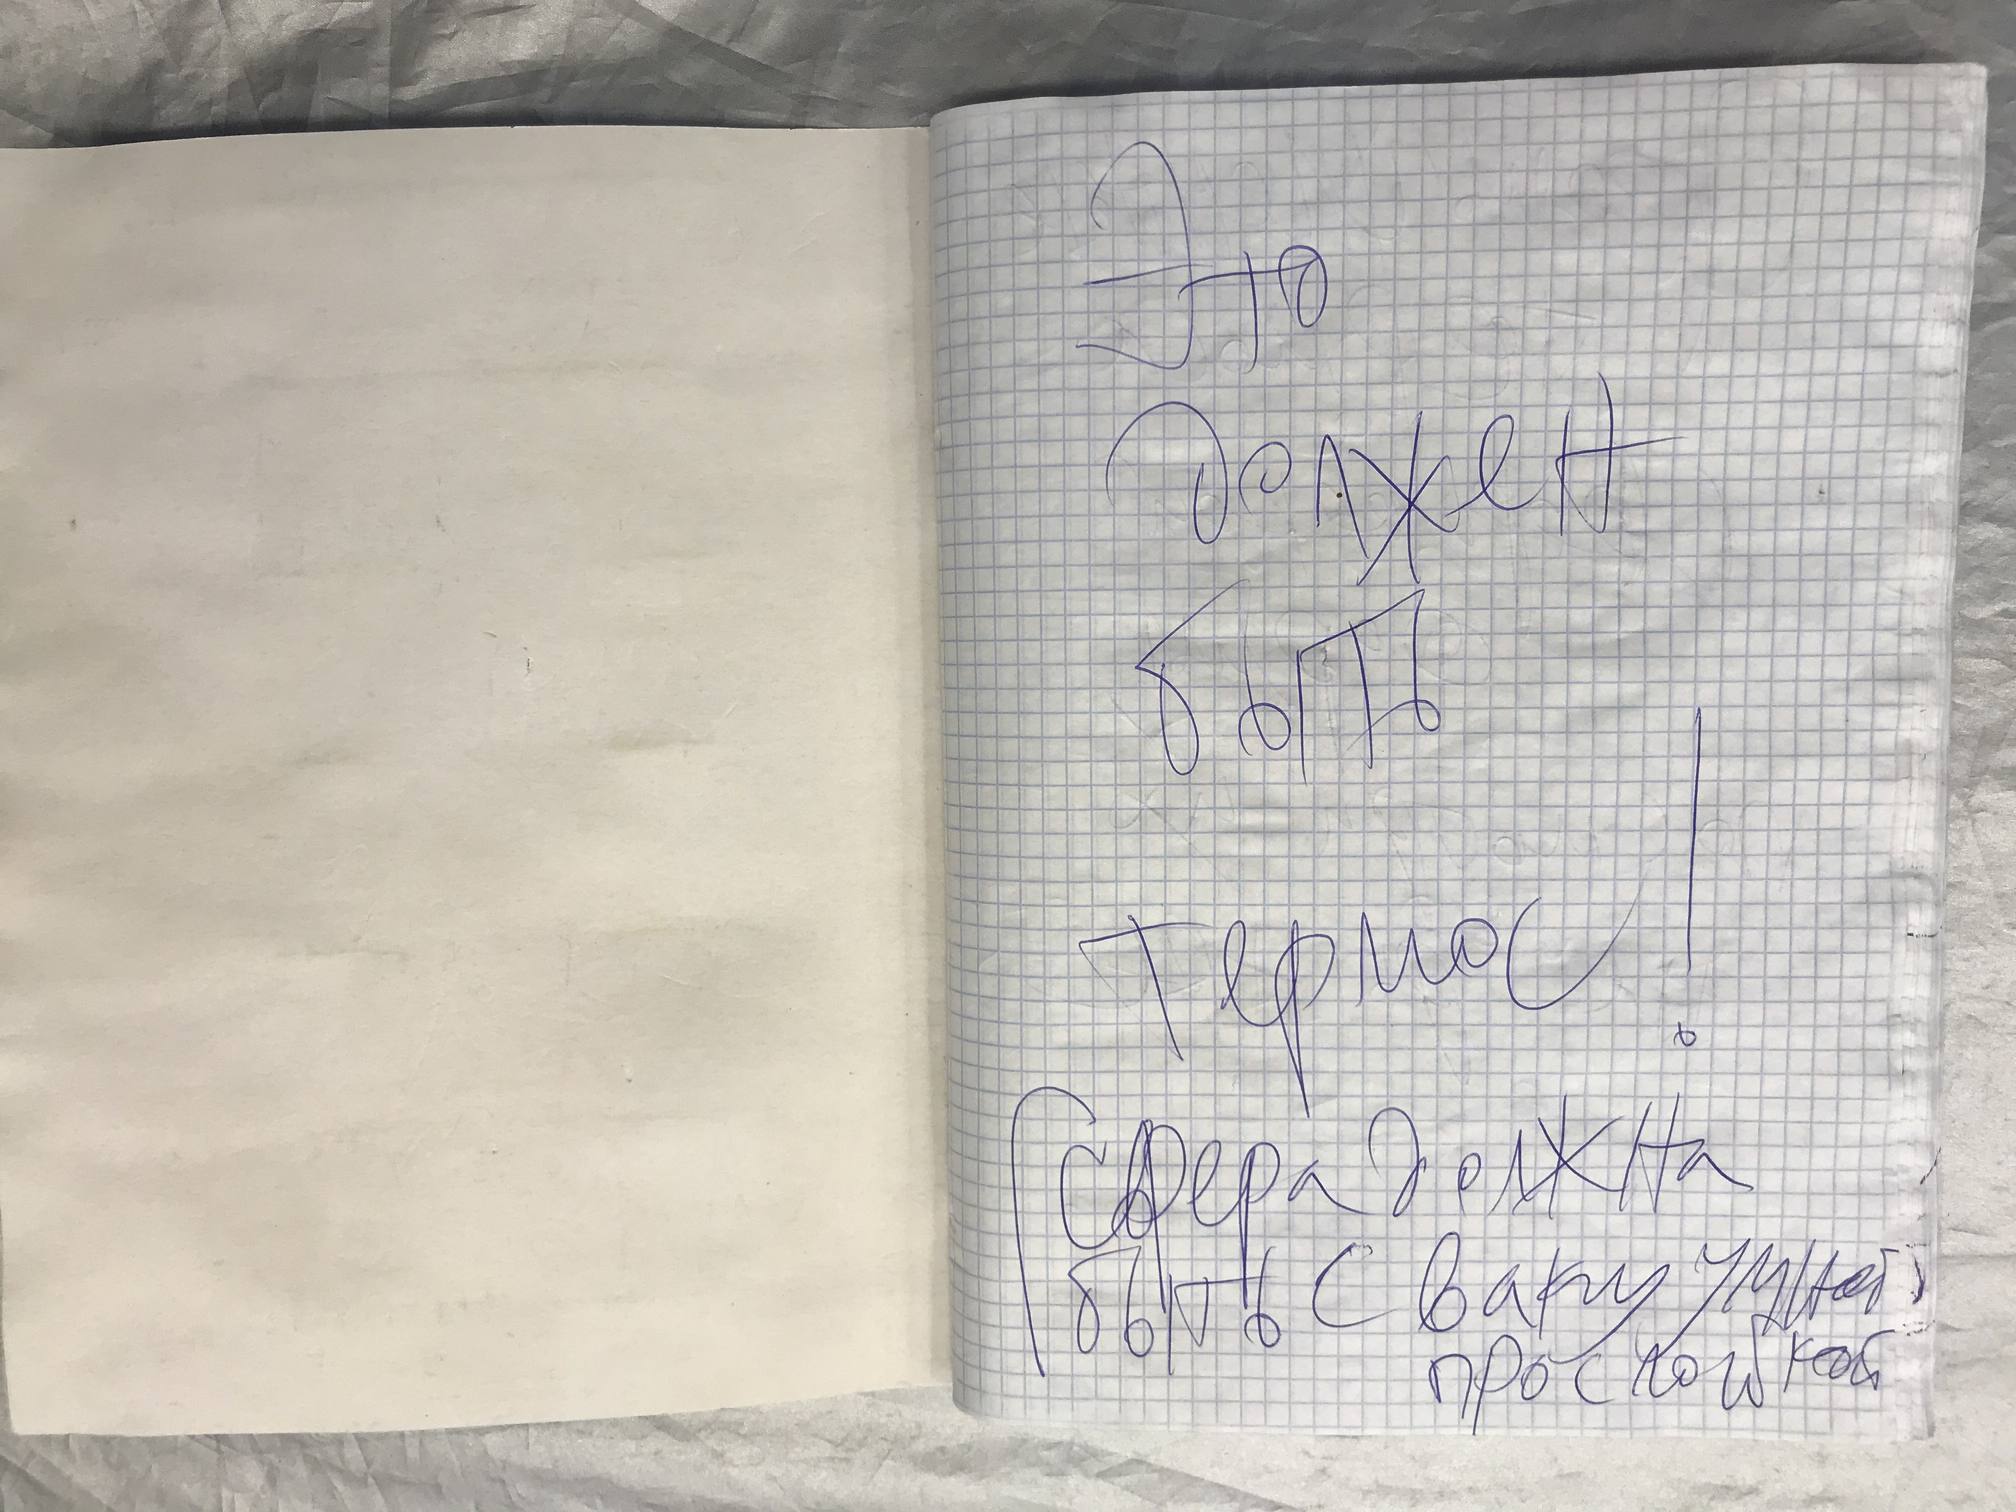 Это
должен
быть
термос!
(сфера должна
быть с вакуумной
прослойкой